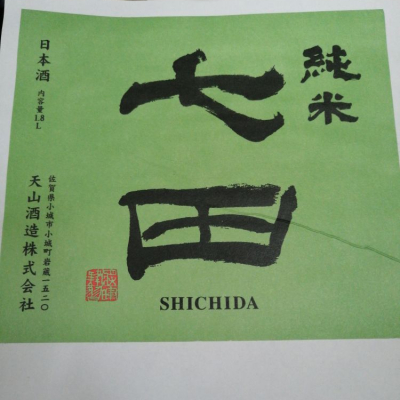 純米
七田
SHICHIDA
日本酒
内容量1.8L
佐賀県小城市小城町岩蔵一五二〇
天山酒造株式会社